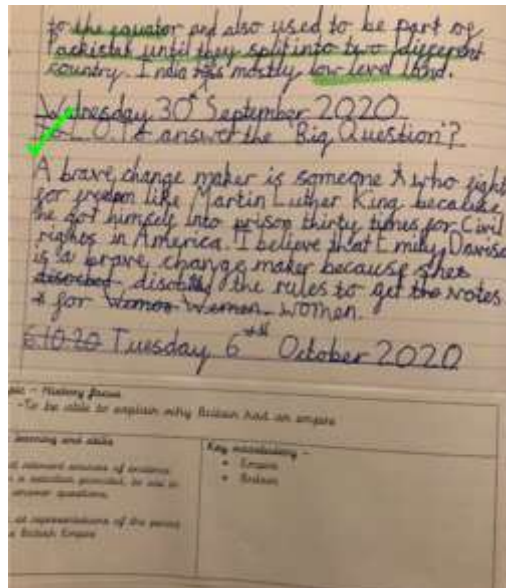 to the equator and also used to be part of
Packistan until they split into two different
country. India is mostly low level land.
Wednesday 30th September 2020
L.O. To answer the "Big Question"?
A brave change maker is someone who fight
for freedom like Martin Luther King because
he got himself into prison thirty times for Civil
rights in America. I believe that Emily Davison
is a brave change maker because she
the rules to get the votes
for Women women.
6.10.20 Tuesday 6th October 2020
- History focus
-To be able to explain why Britain had an empire
learning and skills
Key vocabulary -
relevant sources of evidence
• Empire
a selection provided, to use to
• Britain
answer questions.
at representations of the period
British Empire